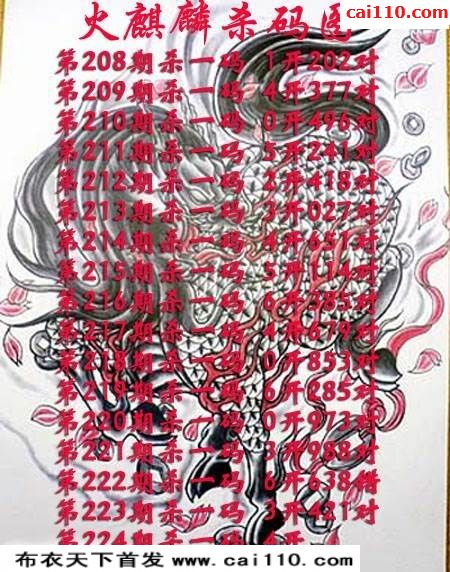 cai110.com
火麒麟杀码图
第208期杀一码 1开202对
第209期杀一码 4开377对
第210期杀一码 0开496对
第211期杀一码 5开241对
第212期杀一码 2开418对
第213期杀一码 3开027对
第214期杀一码 4开651对
第215期杀一码 5开114对
第216期杀一码 6开385对
第217期杀一码 4开679对
第218期杀一码 0开853对
第219期杀一码 6开285对
第220期杀一码 0开973对
第221期杀一码 3开988对
第222期杀一码 6开638错
第223期杀一码 3开421对
第224期杀一码 4开
布衣天下首发 www.cai110.com